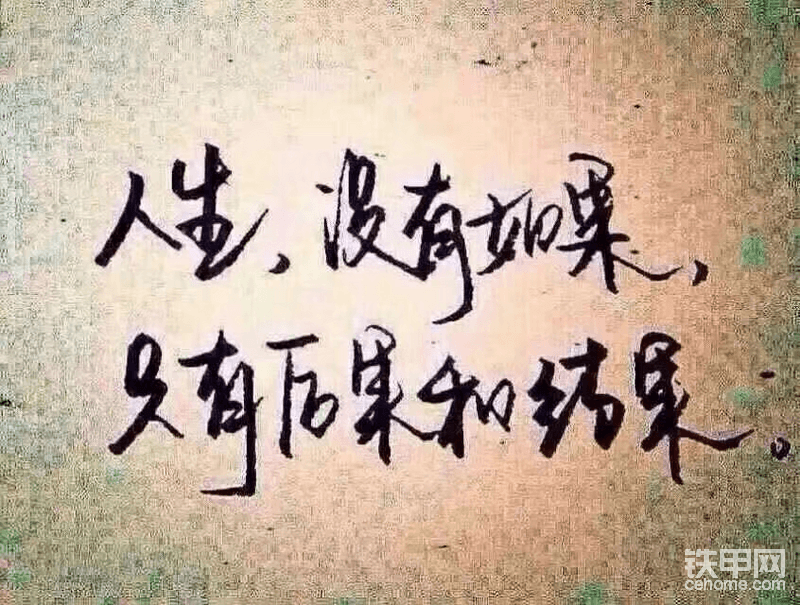 人生，没有如果，
只有后果和结果。
铁甲网
cehome.com